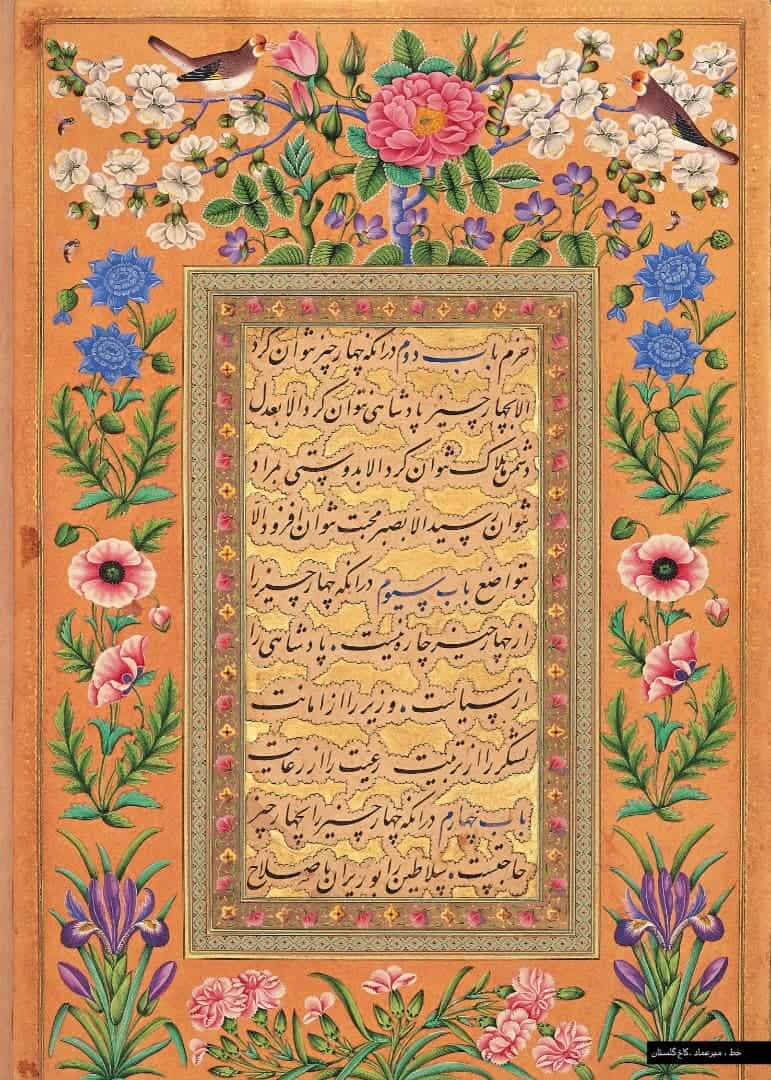 حزم باب دوم درانکه چهار چیز نتوان کرد
الا بچهار چیز پادشاهی نتوان کرد الا بعدل
دشمن هلاک نتوان کرد الا بدوستی بمراد
نتوان رسید الا بصبر محبت نتوان افزود الا
بتواضع باب سیوم درانکه چهار چیز را
از چهار چیز چاره نیست، پادشاهی را
از سیاست، وزیر را از امانت
لشکر را از تربیت رعیت را از رعایت
باب چهارم درانکه چهار چیز را بچهار چیز
حاجتست، سلاطین را بوزیران با صلاح
خط ، میرعماد ،کاخ گلستان